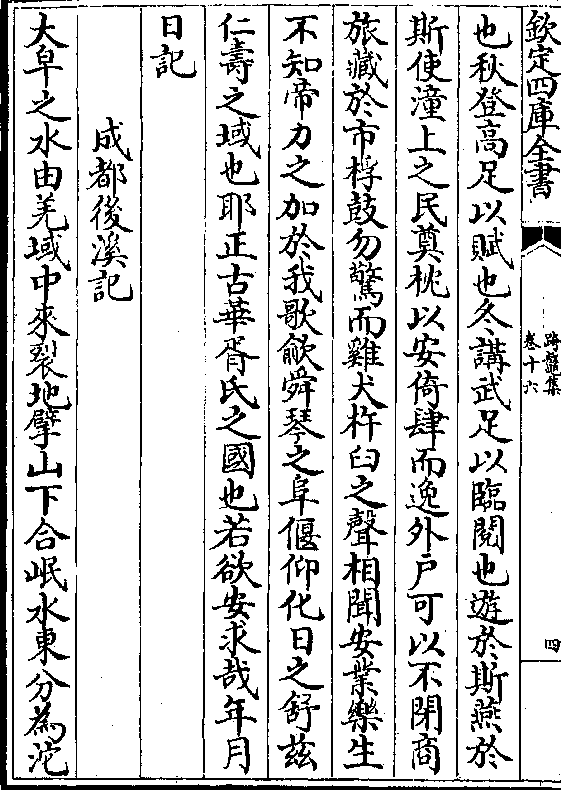 欽定四庫全書
跨鼇集
卷十六
四
也秋登高足以賦也冬講武足以臨閱也遊於斯燕於
斯使潼上之民奠枕以安倚肆而逸外户可以不閉商
旅藏於市桴鼓勿驚而雞犬杵臼之聲相聞安業樂生
不知帝力之加於我歌歈舜琴之阜偃仰化日之舒兹
仁壽之域也耶正古華胥氏之國也若欲安求哉年月
日記
成都後溪記
大皁之水由羌域中來裂地擘山下合岷水東分為沱